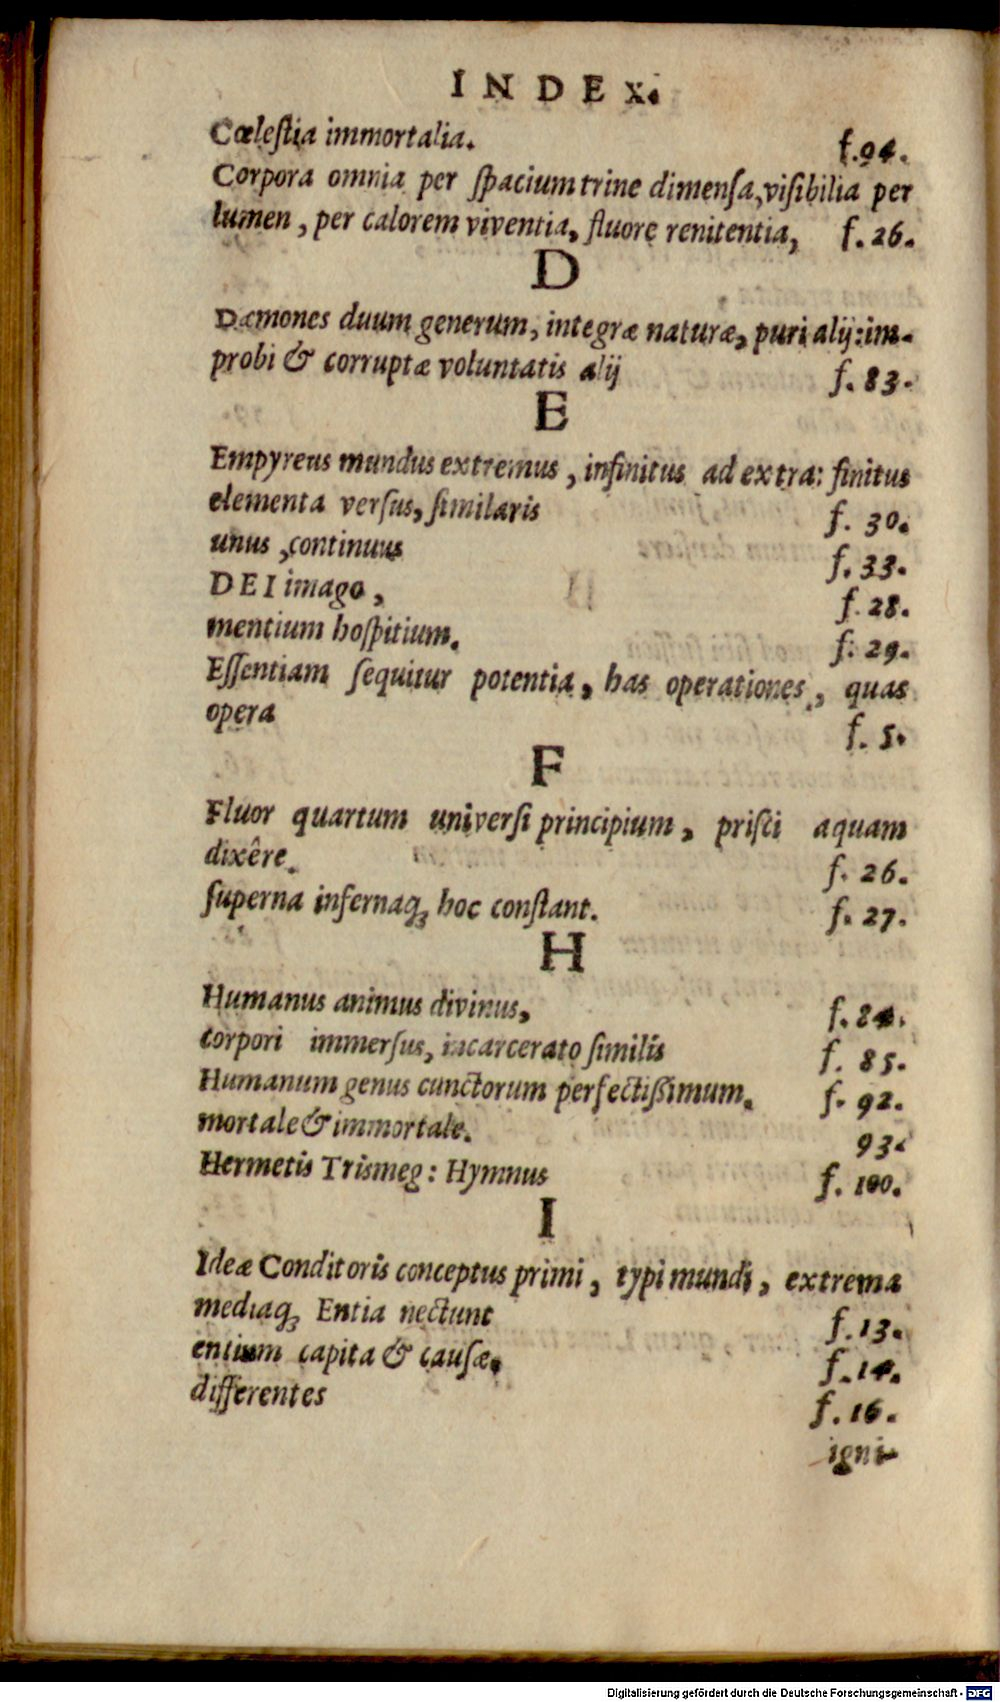 INDEX.
Cœleſtia immortalia. f. 94.
Corpora omnia per ſpacium trine dimenſa, viſibilia per
lumen, per calorem viventia, fluore renitentia, f. 26.
D
Dæmones duum generum, integræ naturæ, puri alij: im-
probi & corruptæ voluntatis alij f. 83.
E
Empyreus mundus extremus, infinitus ad extra: finitus
elementa verſus, ſimilaris f. 30.
unus, continuus f. 33.
DEI imago, f. 28.
mentium hoſpitium. f. 29.
Eſſentiam ſequitur potentia, has operationes, quas
opera f. 5.
F
Fluor quartum univerſi principium, priſci aquam
dixêre. f. 26.
ſuperna infernaq́; hoc conſtant. f. 27.
H
Humanus animus divinus, f. 84.
corpori immerſus, incarcerato ſimilis f. 85.
Humanum genus cunctorum perfectiſſimum. f. 92.
mortale & immortale. 93.
Hermetis Trismeg: Hymnus f. 100.
I
Ideæ Conditoris conceptus primi, typi mundi, extrema
mediaq́; Entia nectunt f. 13.
entium capita & cauſæ. f. 14.
differentes f. 16.
igni-
Digitalisierung gefördert durch die Deutsche Forschungsgemeinschaft - DFG